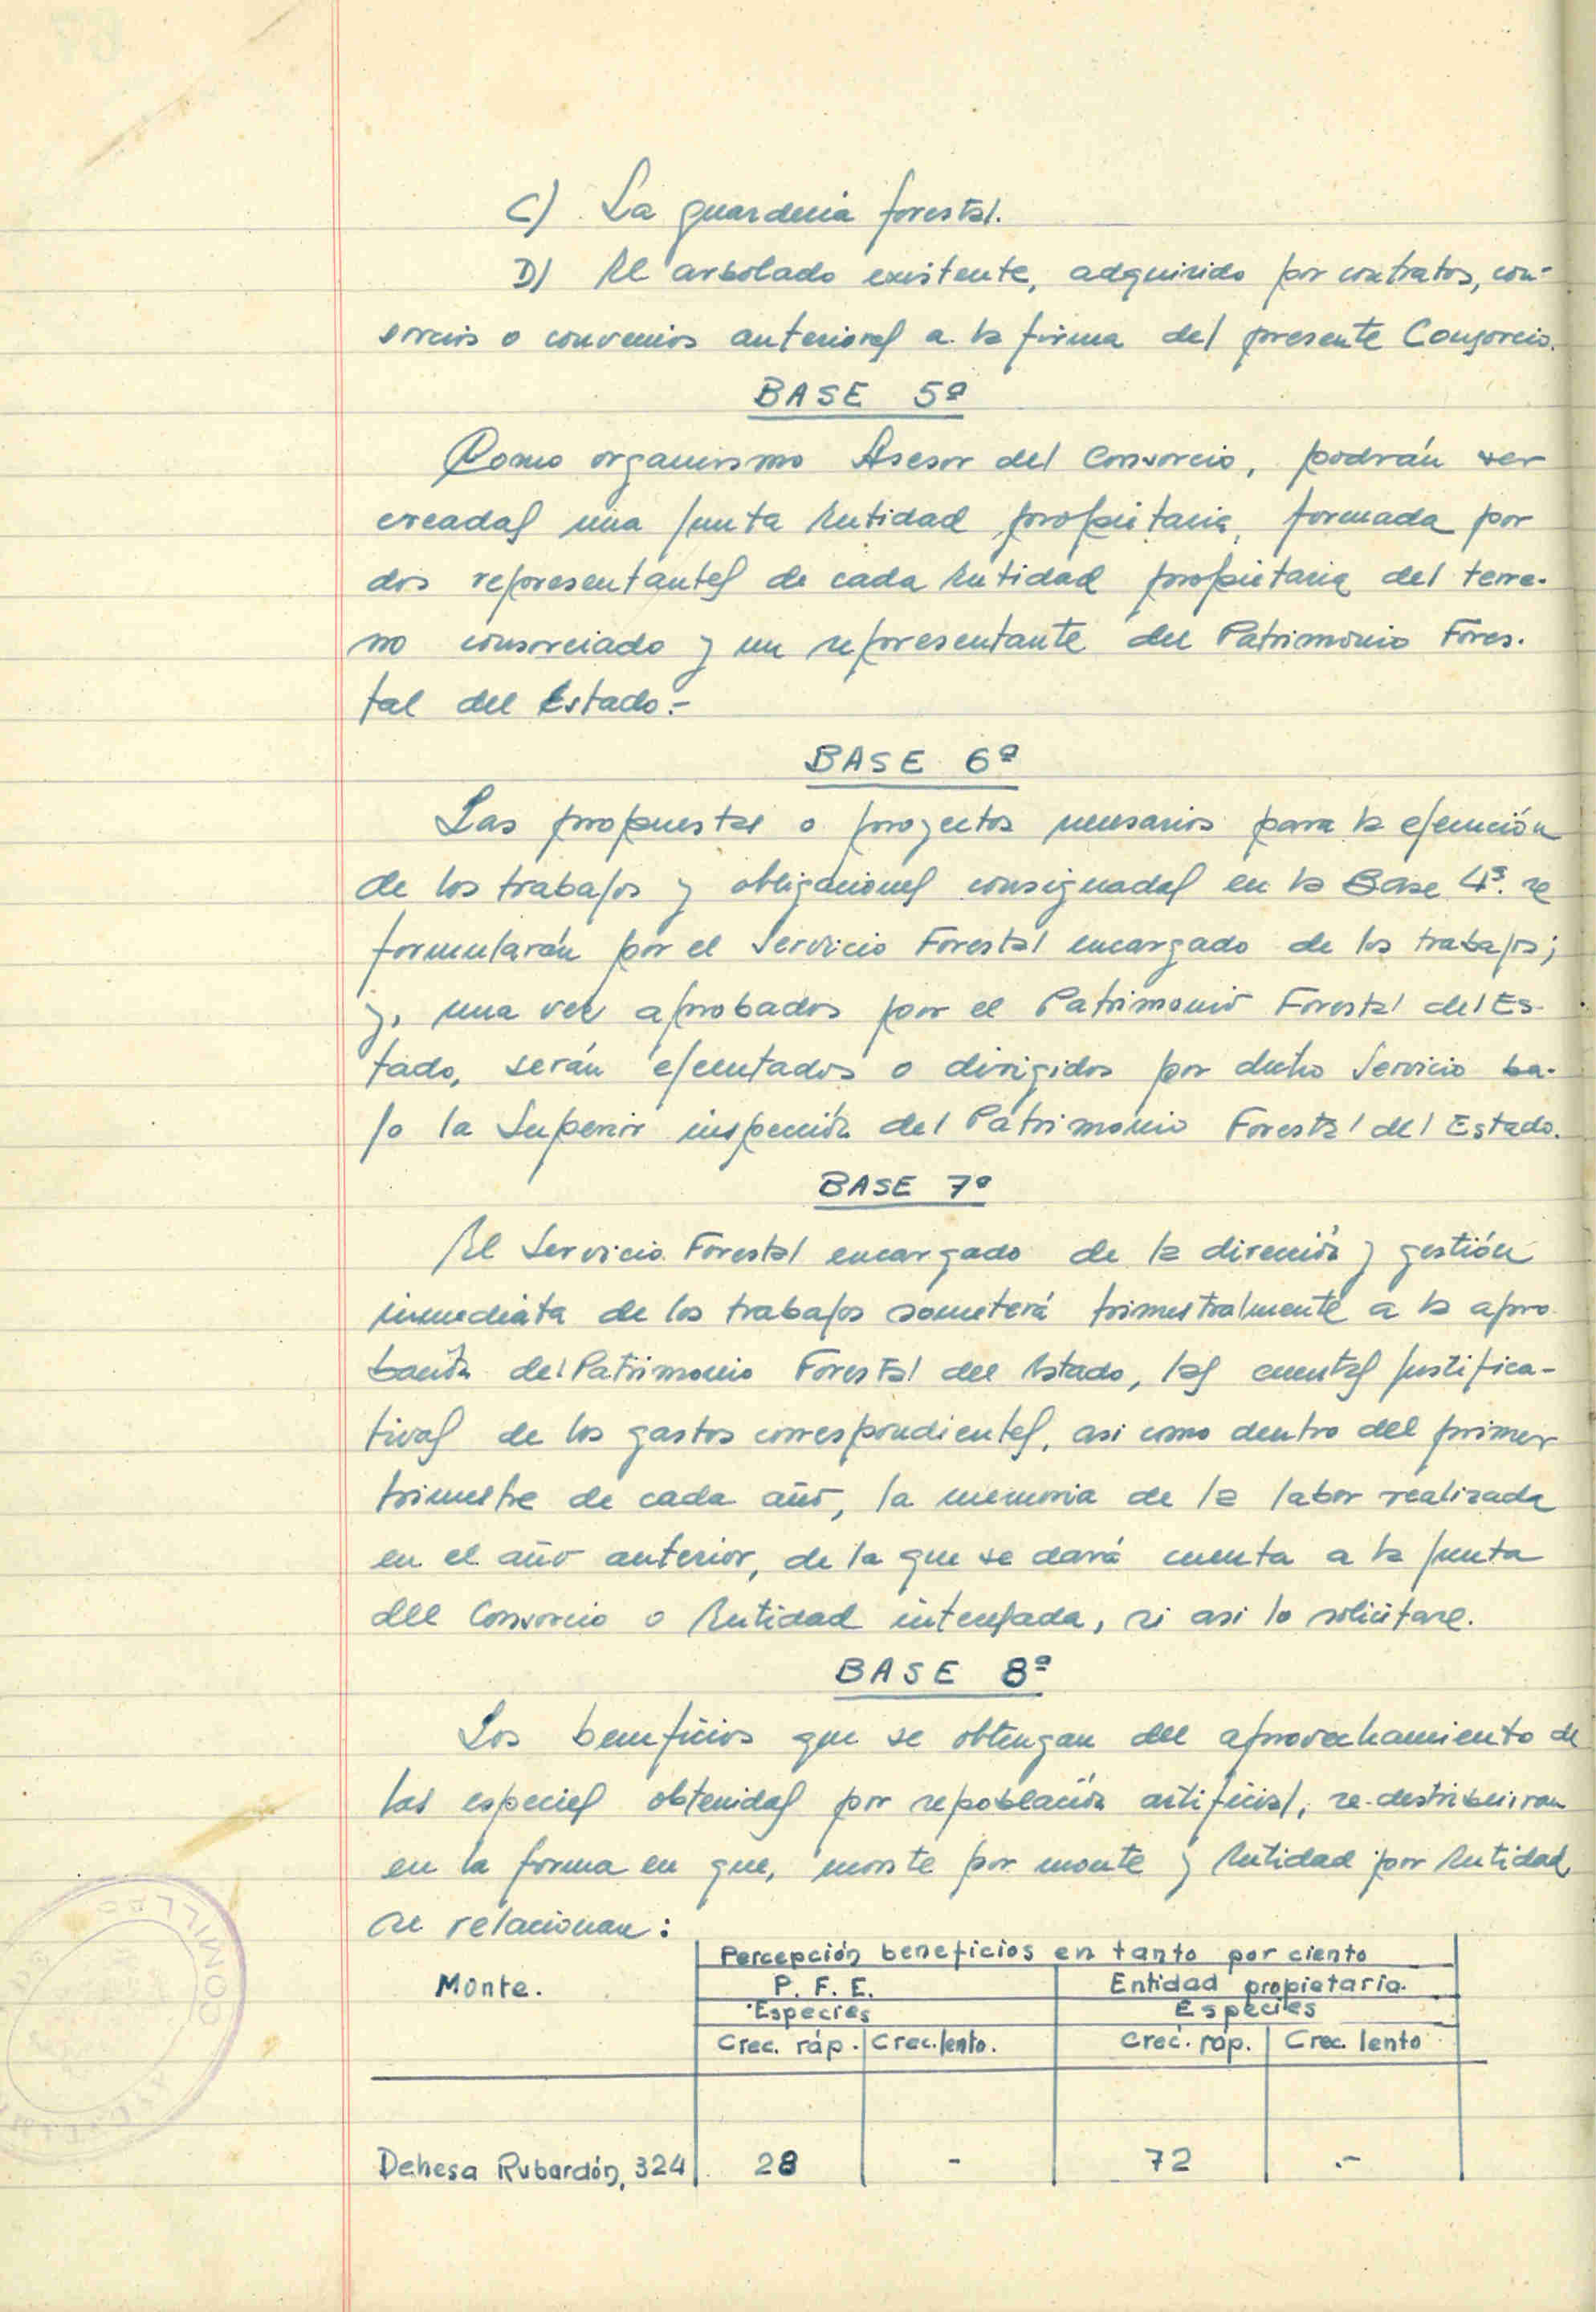 C) La guarderia forestal.
D) El arbolado existente, adquirido por contratos, con-
sorcios o convenios anteriores a la firma del presente Consorcio.
BASE 5ª
Como organismo Asesor del Consorcio, podrán ser
creadas una Junta Entidad propietaria, formada por
dos representantes de cada Entidad propietaria del terre-
no consorciado y un representante del Patrimonio Fores-
tal del Estado.-
BASE 6ª
Las propuestas o proyectos necesarios para la ejecución
de los trabajos y obligaciones consignadas en la Base 4ª. se
formularán por el Servicio Forestal encargado de los trabajos;
y, una vez aprobados por el Patrimonio Forestal del Es-
tado, serán ejecutados o dirigidos por dicho Servicio ba-
jo la Superior inspección del Patrimonio Forestal del Estado.
BASE 7ª
El Servicio Forestal encargado de la dirección y gestión
inmediata de los trabajos someterá trimestralmente a la apro
bación del Patrimonio Forestal del Estado, las cuentas justifica-
tivas de los gastos correspondientes, asi como dentro del primer
trimestre de cada año, la memoria de la labor realizada
en el año anterior, de la que se dará cuenta a la Junta
del Consorcio o Entidad interesada, si asi lo solicitare.
BASE 8ª
Los beneficios que se obtengan del aprovechamiento de
las especies obtenidas por repoblación artificial, se distribuiran
en la forma en que, monte por monte y Entidad por Entidad,
se relacionan:
Percepción beneficios en tanto por ciento
Monte. P. F. E. Entidad propietaria.
Especies Especies
Crec. ráp. Crec. lento. Crec. ráp. Crec. lento
Dehesa Rubardón, 324 28 - 72 .-